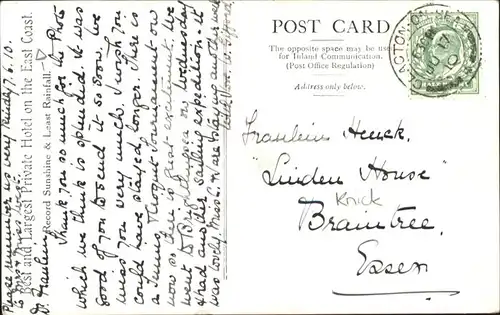 POST CARD
The opposite space may be used
for Inland Communication.
(Post Office Regulation)
Address only below.
CLACTON-ON-SEA
Fraulein Henck.
"Linden House"
Knick
Braintree.
Essex
Best and Largest Private Hotel on the East Coast.
Record Sunshine & Least Rainfall.
Please remember us very kindly
D. Fraulein
Thank you so much for the Photo
which we think is splendid. It was
good of you to send it so soon. We
miss you very much. I wish you
could have stayed longer. There is
a Tennis Tournament on
now so there is great excitement. We
went to B on Wednesday
& had another sailing expedition - it
was lovely. & are staying another week